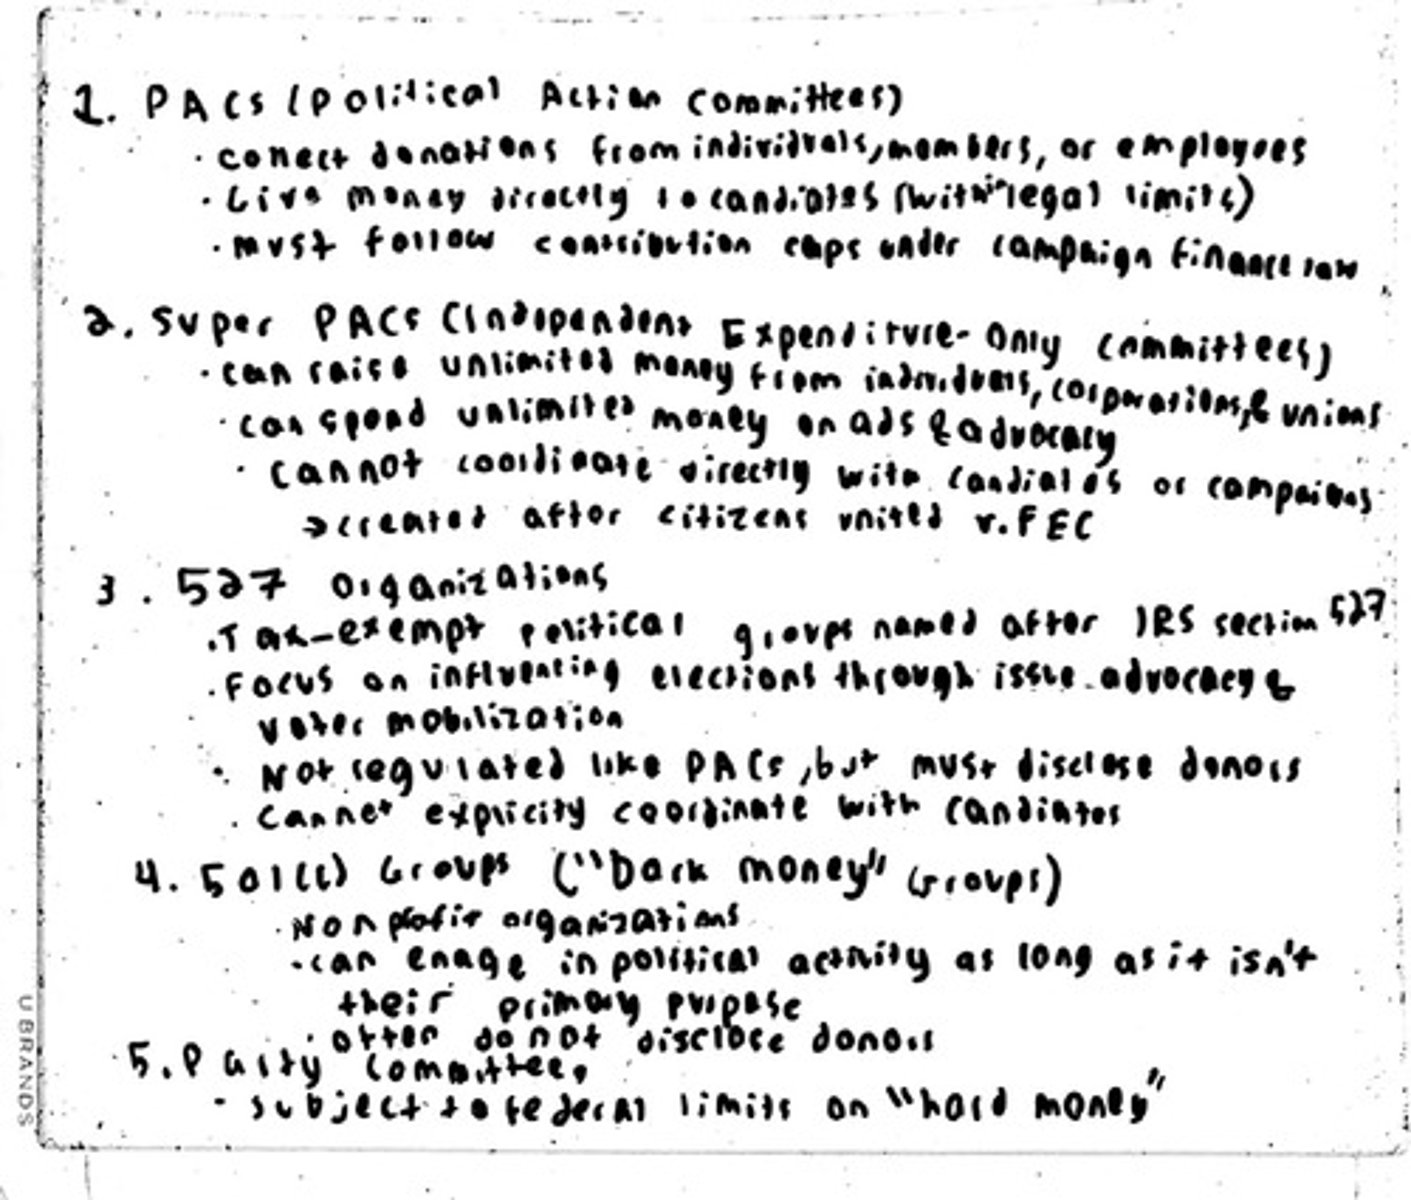 1. PACs (Political Action Committees)
· collect donations from individuals, members, or employees
· Give money directly to candidates (within legal limits)
· must follow contribution caps under campaign finance law
2. Super PACs (Independent Expenditure-Only Committees)
· can raise unlimited money from individuals, corporations, & unions
· can spend unlimited money on ads & advocacy
· cannot coordinate directly with candiates or campaigns
→ created after citizens united v. FEC
3. 527 Organizations
· Tax-exempt political groups named after IRS section 527
· Focus on influencing elections through issue advocacy &
voter mobilization
· Not regulated like PACs, but must disclose donors
· Cannot explicity coordinate with candiates
4. 501(c) Groups ("Dark money" Groups)
· Nonprofit organizations
· can enage in political activity as long as it isn't
their primary purpose
· often do not disclose donors
5. Party Committees
· subject to federal limits on "hard money"
U BRANDS